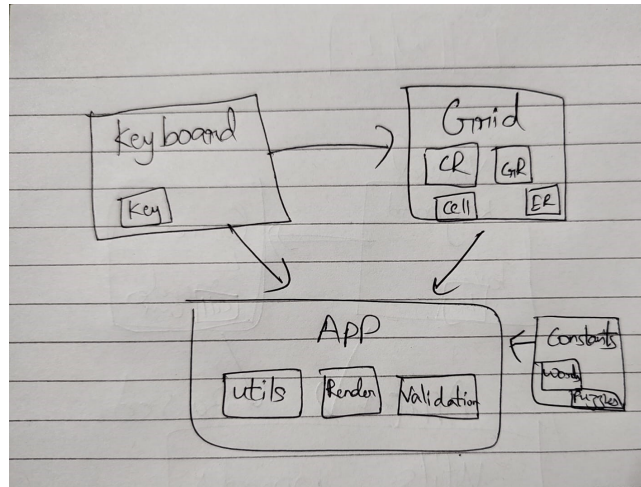 Keyboard
Key
Grid
CR
GR
Cell
ER
App
utils
Render
Validation
Constants
words
Puzzles